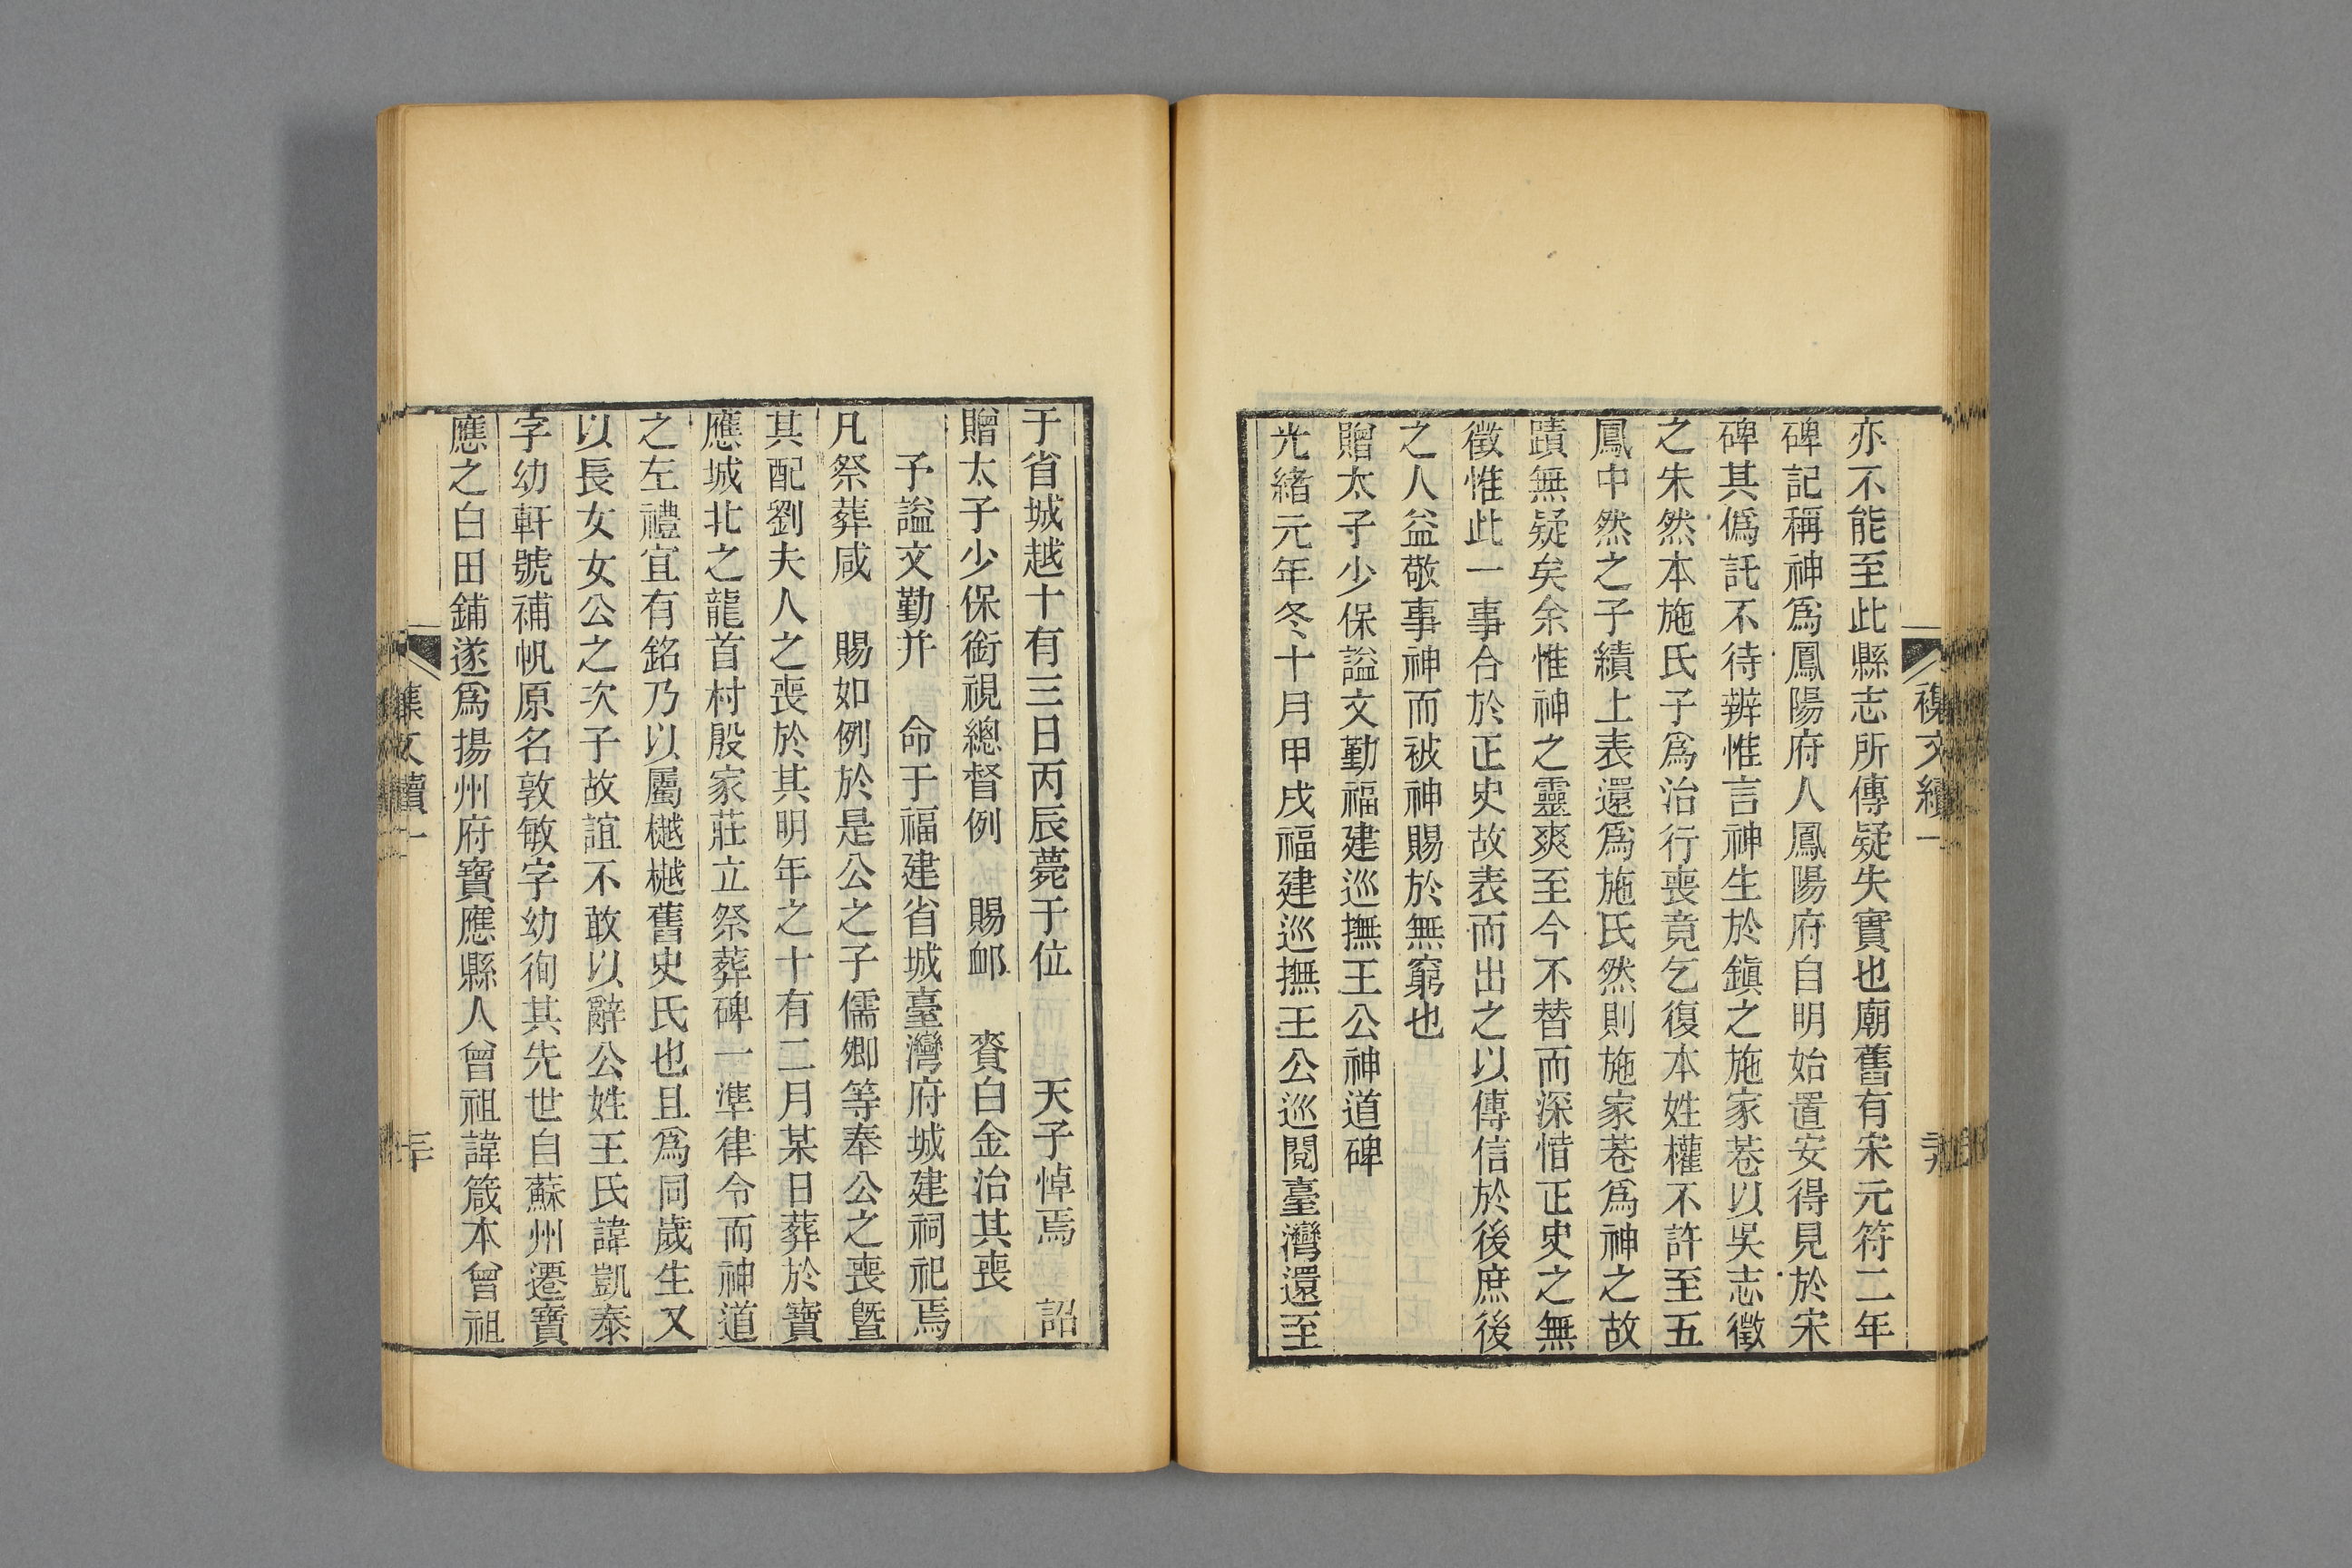 亦不能至此縣志所傳疑失實也廟舊有宋元符二年
碑記稱神爲鳳陽府人鳳陽府自明始置安得見於宋
碑其僞託不待辨惟言神生於鎭之施家菴以吳志徵
之朱然本施氏子爲治行喪竟乞復本姓權不許至五
鳳中然之子績上表還爲施氏然則施家菴爲神之故
蹟無疑矣余惟神之靈爽至今不替而深惜正史之無
徵惟此一事合於正史故表而出之以傳信於後庶後
之人益敬事神而被神賜於無窮也
贈太子少保謚文勤福建巡撫王公神道碑
光緒元年冬十月甲戌福建巡撫王公巡閱臺灣還至
于省城越十有三日丙辰薨于位　　天子悼焉　詔
贈太子少保銜視總督例　賜卹　賚白金治其喪
予謚文勤并　命于福建省城臺灣府城建祠祀焉
凡祭葬咸　賜如例於是公之子儒卿等奉公之喪曁
其配劉夫人之喪於其明年之十有二月某日葬於寶
應城北之龍首村殷家莊立祭葬碑一準律令而神道
之左禮宜有銘乃以屬樾樾舊史氏也且爲同歲生又
以長女女公之次子故誼不敢以辭公姓王氏諱凱泰
字幼軒號補帆原名敦敏字幼徇其先世自蘇州遷寶
應之白田鋪遂爲揚州府寶應縣人曾祖諱箴本曾祖